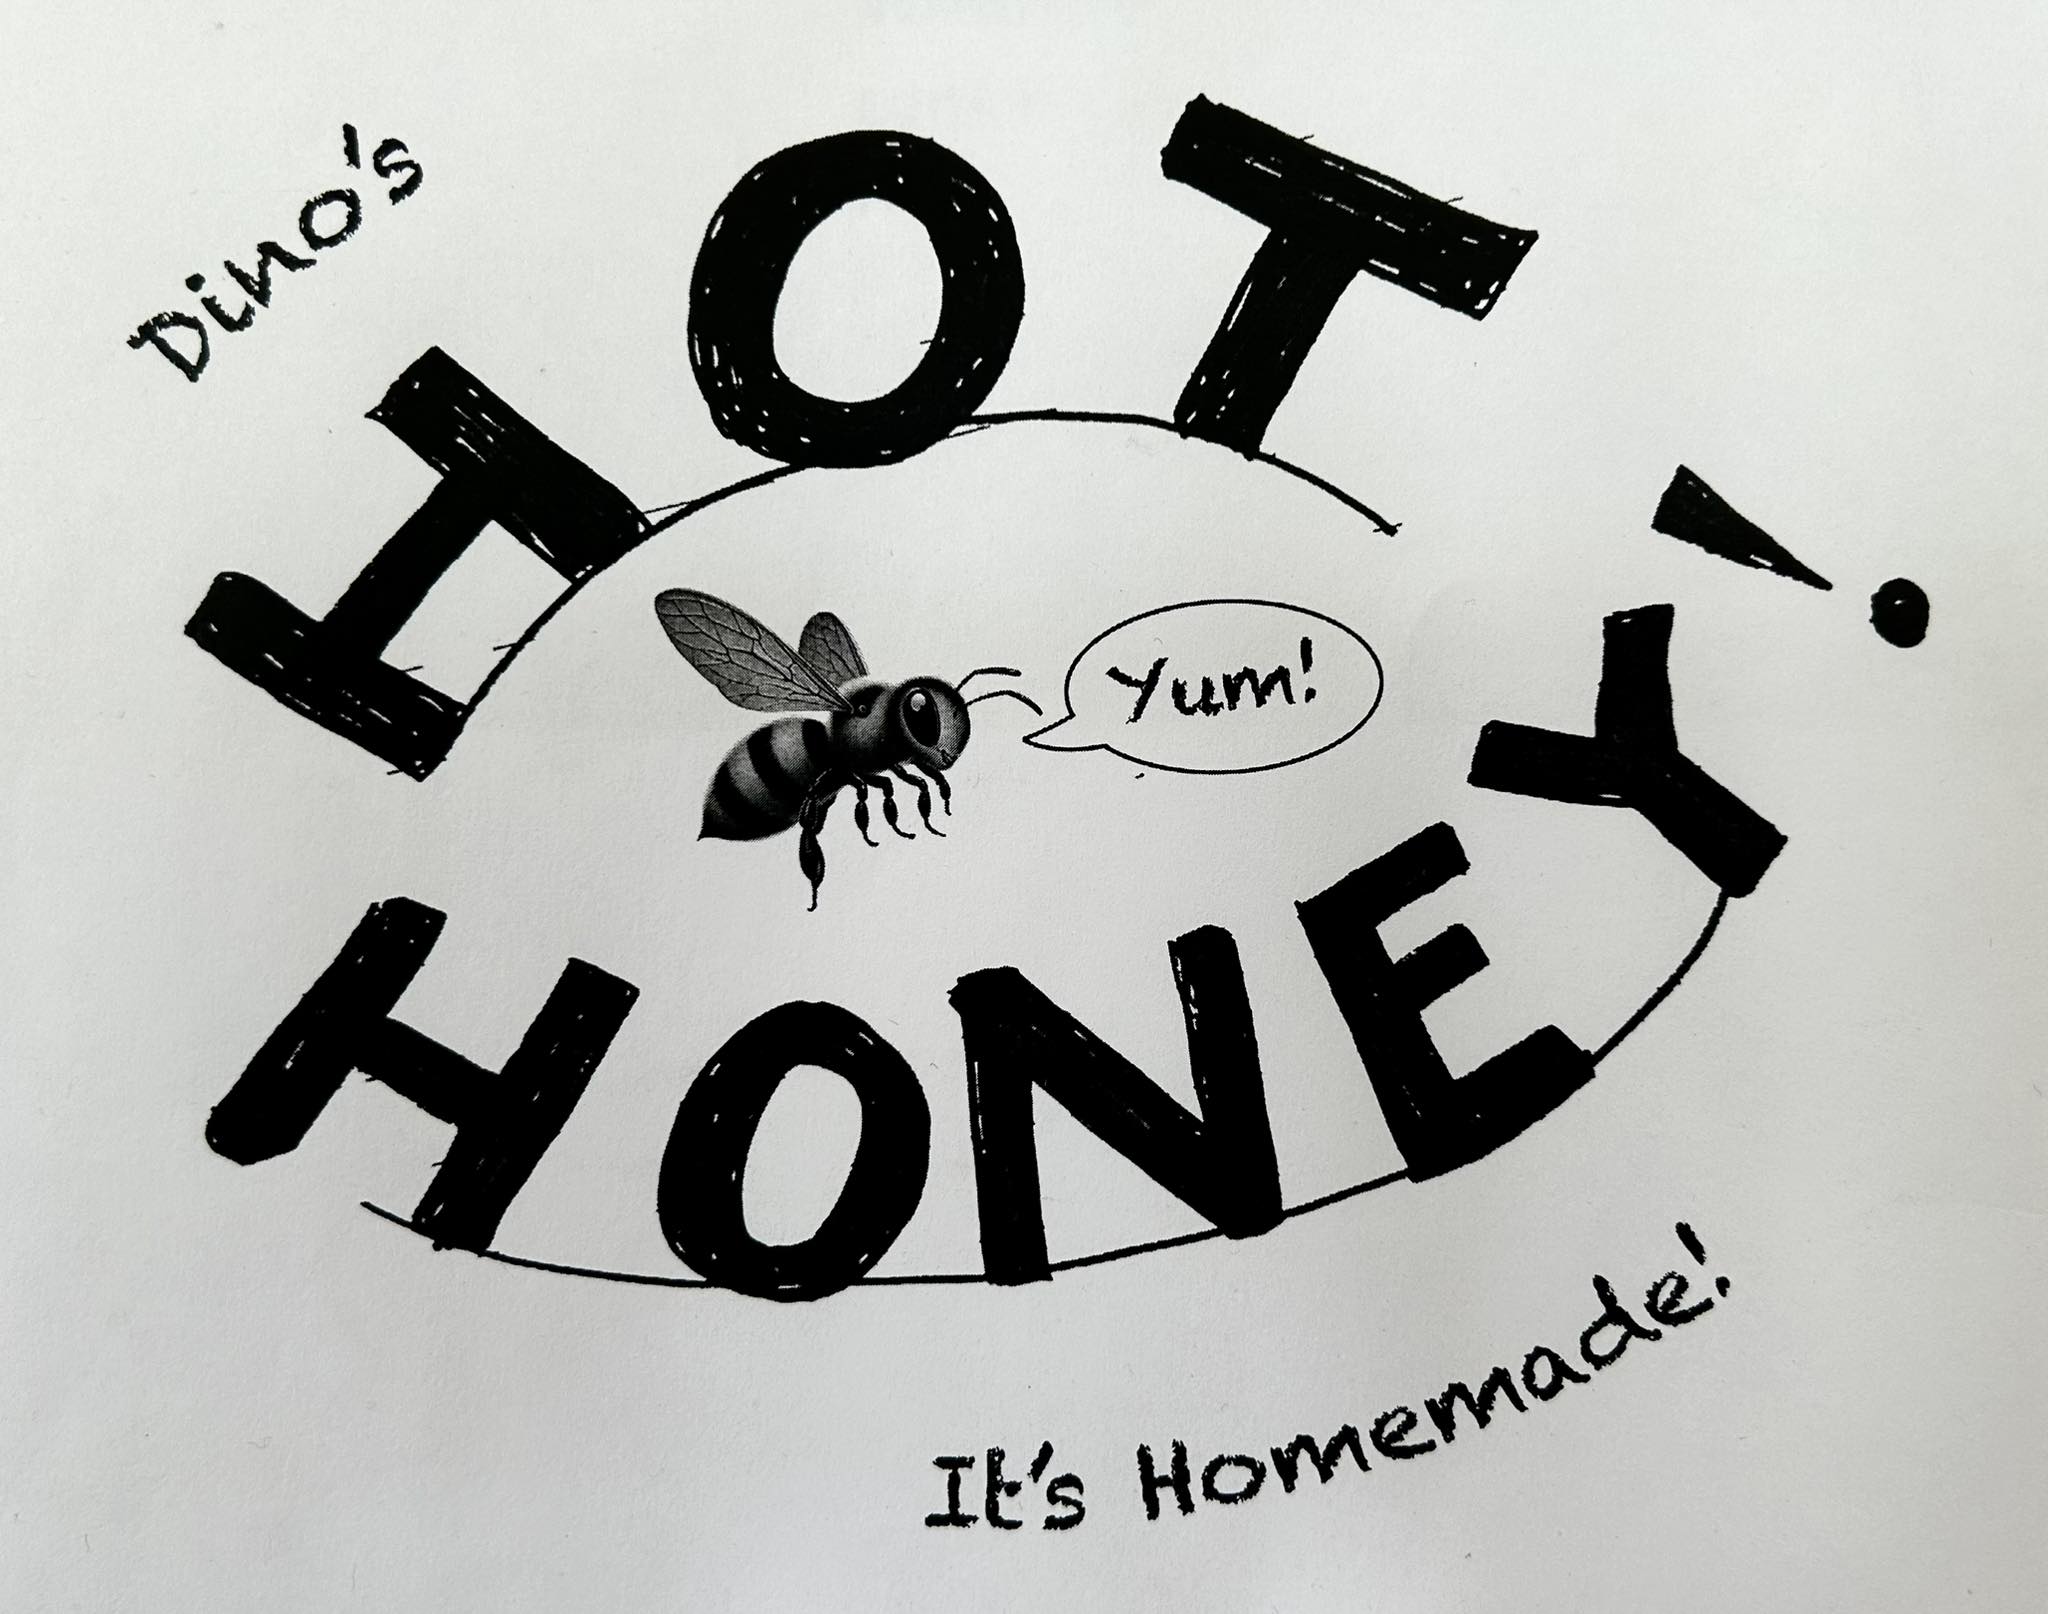 Dino's
HOT
Yum!
HONEY!
It's Homemade!